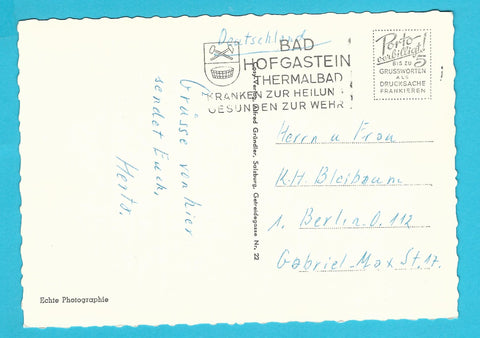 Deutschland
BAD
HOFGASTEIN
THERMALBAD
KRANKEN ZUR HEILUN
GESUNDEN ZUR WEHR
Porto
verbilligt!
BIS ZU 5
GRUSSWORTEN
ALS
DRUCKSACHE
FRANKIEREN
Grüsse von hier
sendet Euch,
Herta.
Alfred Gründler, Salzburg, Getreidegasse Nr. 22
Herrn u Frau
K.H. Bleibaum
1. Berlin. O. 112
Gabriel-Max St. 17.
Echte Photographie